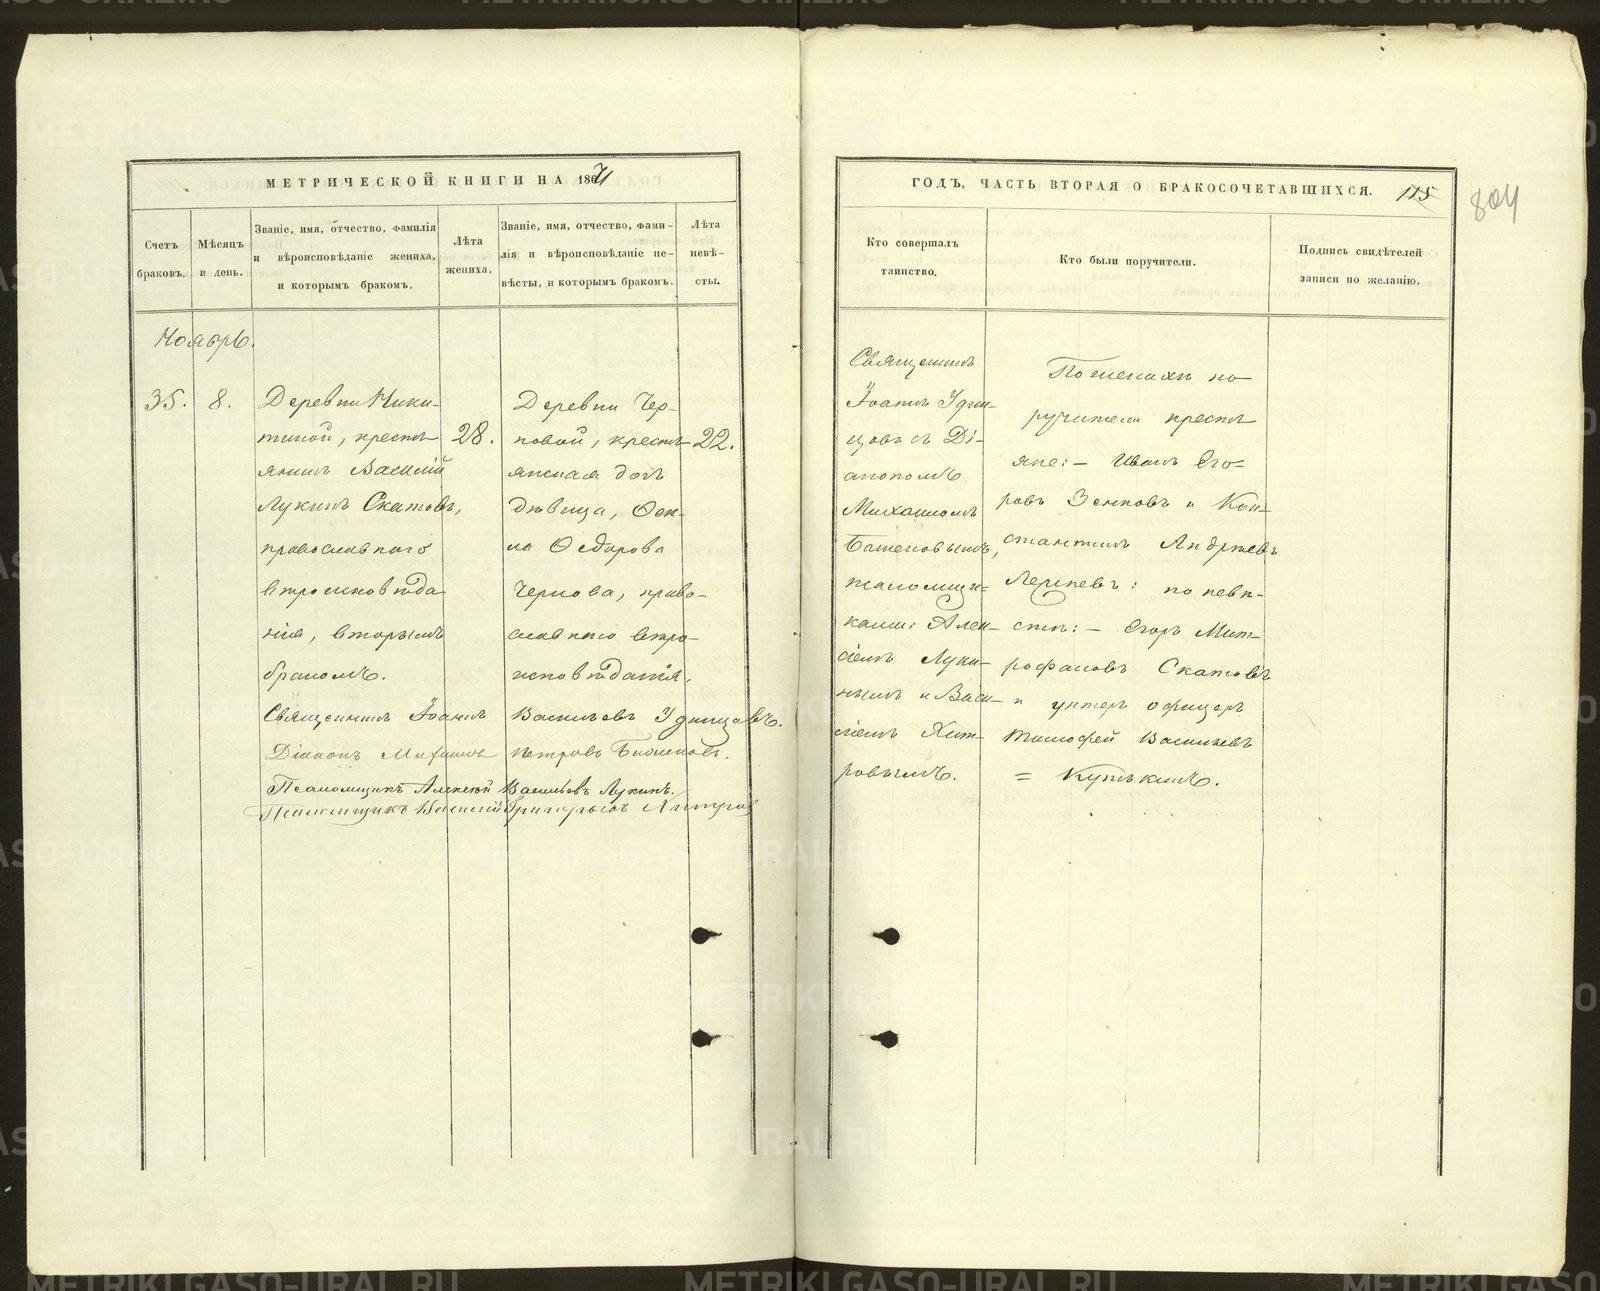 МЕТРИЧЕСКОЙ КНИГИ НА 1871
Счетъ
браковъ.
Мѣсяцъ
и день.
Званіе, имя, отчество, фамилія
и вѣроисповѣданіе жениха,
и которымъ бракомъ.
Лѣта
жениха.
Званіе, имя, отчество, фами-
лія и вѣроисповѣданіе не-
вѣсты, и которымъ бракомъ.
Лѣта
невѣ-
сты.
Ноябрь.
35.
8.
Деревни Ники-
тиной, кресть-
янинъ Василій
Лукинъ Скатовъ,
православнаго
вѣроисповѣда-
нія, вторымъ
бракомъ.
28.
Деревни Чер-
новой, кресть-
янская дочь
дѣвица,
Ѳедорова
Чернова, право-
славнаго вѣро-
исповѣданія.
22.
Священникъ Іоаннъ Васильевъ Удинцовъ.
Діаконъ Михаилъ Петровъ Баженовъ.
Псаломщикъ Алексѣй Васильевъ Лукинъ.
Псаломщикъ Василій Григорьевъ Хитровъ
ГОДЪ, ЧАСТЬ ВТОРАЯ О БРАКОСОЧЕТАВШИХСЯ.
115
804
Кто совершалъ
таинство.
Кто были поручители.
Подпись свидѣтелей
записи по желанію.
Священникъ
Іоаннъ Удин-
цовъ съ Ді-
акономъ
Михаиломъ
Баженовымъ,
псаломщи-
ками: Алек-
сѣемъ Луки-
нымъ и Васи-
ліемъ Хит-
ровымъ.
По женихѣ по-
ручители кресть-
яне: - Иванъ Его-
ровъ Зенковъ и Кон-
стантинъ Андреевъ
: по невѣ-
стѣ: - Егоръ Мит-
рофановъ Скатовъ
и унтеръ офицеръ
Тимофей Васильевъ
= Кутькинъ.